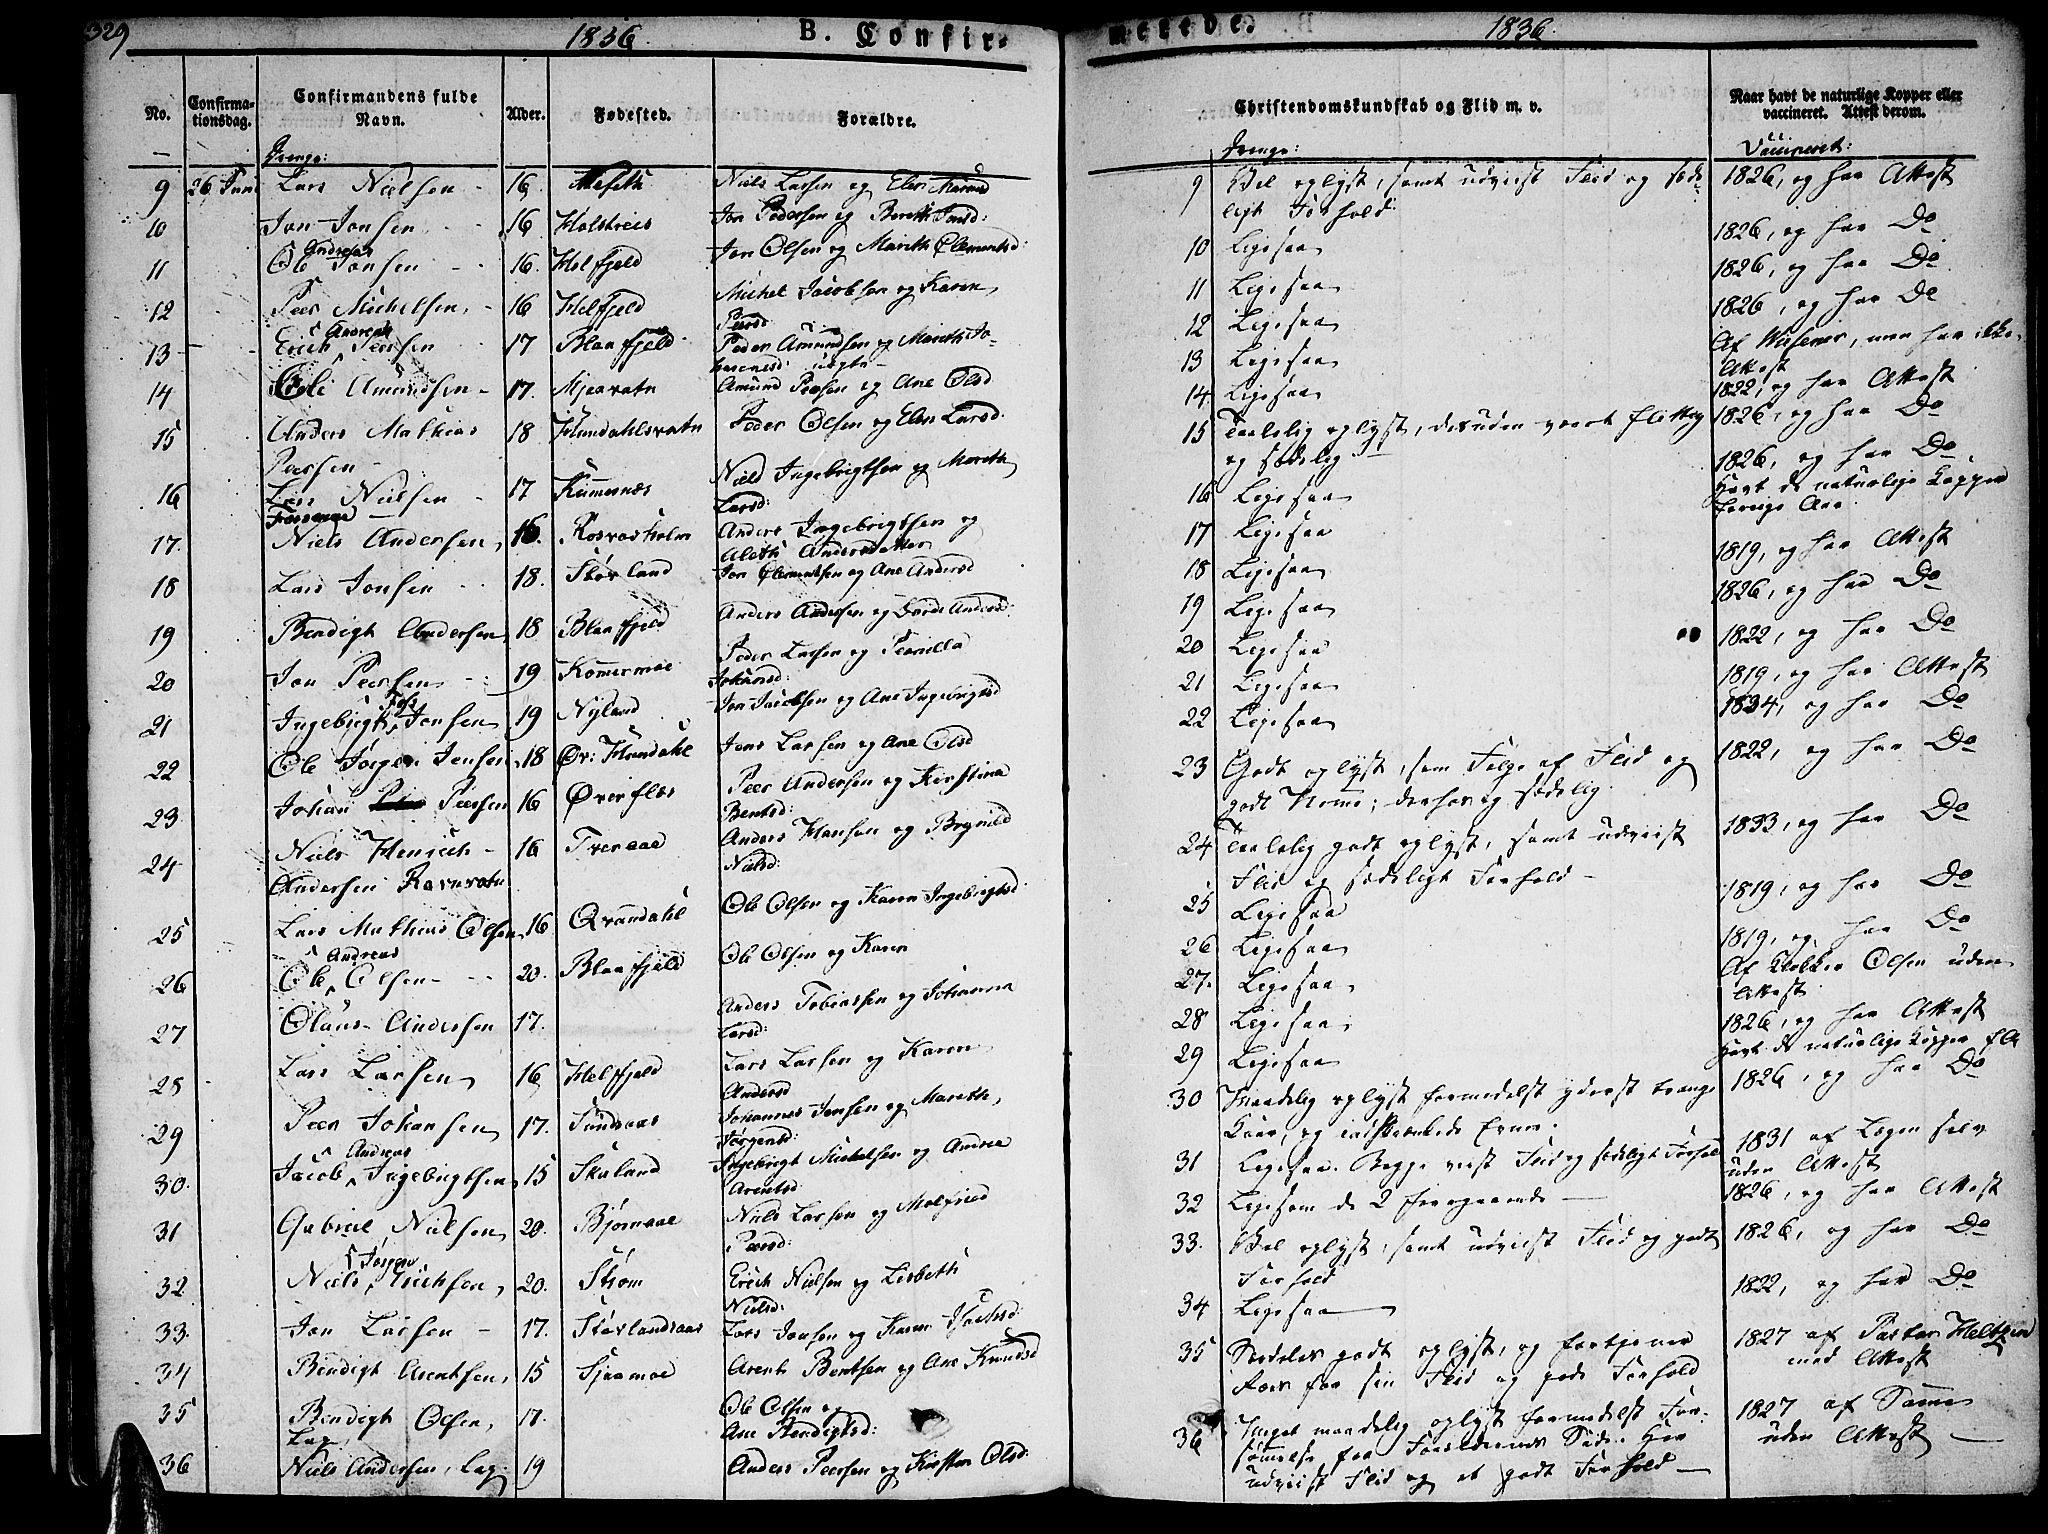 329
1836.
B. Confir-
No.
Confirma-
tionsdag.
Confirmandens fulde
Navn.
Alder.
Fødested.
Forældre.
Drenge:
9 26 Juni Lars Nielsen - 16. Niels Larsen og Elen
10 Jon Jonsen 16 Holstreis Jon Pedersen og Bereth Jonsd:
Andreas
11 Ole Jonsen 16. Helfjeld Jon Olsen og Mareth Clementsd:
12 Peer Michelsen, 16 Helfjeld Michel Jacobsen og Karen
Peersd
Andreas
13 Erich Peersen 17 Blaafjeld Peder Amundsen og Mareth Jo-
hannesd: uægte
14 Ole Amundsen - 17. Mjeavatn Amund Peersen og Ane Olsd
15 Anders Mathias 18 Hundahlsvatn Peder Olsen og Elen Larsd:
Peersen
16 Lars Nielsen 17 Kummenæs Niels Ingebrigtsen og Mareth
Larsd:
17. Niels Andersen, 16. Rosvasholm Anders Ingebrigtsen og
Aleth Andersdatter
18 Lars Jonsen 18. Storland Jon Clementsen og Ane Andersd
19 Bendigt Andersen 18 Blaafjeld Anders Andersen og Dorde Andersd:
20 Jon Peersen 19 Komermoe Peder Larsen og Pernilla
Johansd:
21 Ingebrigt Jonsen 19 Nyland Jon Jacobsen og Ane Ingebrigtsd
22 Ole Jørgen Jensen 18 Øv: Hundahl Jens Larsen og Ane Olsd
23 Johan Peersen 16 Øverflos Peer Andersen og Kirstina
Bentsd:
24 Niels Henrich - 16 Tveraae Anders Hansen og Brynild
Nielsd:
Andersen Ravnvatn
25 Lars Mathias Olsen 16 Qvandahl Ole Olsen og Karen Ingebrigtsd:
Andreas
26 Ole Olsen - 20. Blaafjeld Ole Olsen og Karen
27 Olaus Andersen 17. Anders Tobiassen og Johanna
Larsd:
28 Lars Larsen 16 Helfjeld Lars Larsen og Karen
Andersd
29 Peer Johansen 17. Sundsaas Johannes Jensen og Mareth,
Jørgensd:
Andreas
30. Jacob Ingebrigtsen 15 Skuland Ingebrigt Michelsen og Andrea
Arentsd
31 Gabriel Nielsen 20. Bjørnaae Niels Larsen og Malfried
Peersd:
Jørgen
32 Niels Erichsen, 20. Strøm Erich Nielsen og Lisbeth
Nielsd:
33. Jon Larsen - 17. Storlandsaas Lars Jonsen og Karen
34 Bendigt Arentsen, 15 Sjaamoe Arent Bentsen og Ane Knudsd
35 Bendigt Olsen, 17. Ole Olsen og
Lap Ane Bendigtsd:
36 Niels Andersen, Lap 19 Anders Peersen og Kirsten Olsd:
merede.
1836.
Christendomskundskab og Flid m. v.
Naar havt de naturlige Kopper eller
vaccineret. Attest derom.
Drenge:
Vaccineret:
9 Vel oplyst, samt udviist Flid og sæde-
ligt Forhold.
1826, og har Attest
10 Ligesaa 1826, og har Do
11 Ligesaa 1826, og har Do
12 Ligesaa 1826, og har Do
13 Ligesaa Af, men har ikke
Attest
14 Ligesaa 1822, og har Attest
15 Taalelig oplyst, desuden været flittig
og sædelig.
1826, og har Do
16 Ligesaa 1826, og har Do
17 Ligesaa Havt de naturlige Kopper
18 Ligesaa 1819, og har Attest
19 Ligesaa 1826, og har Do
20 Ligesaa 1822, og har Do
21 Ligesaa 1819, og har Attest
22 Ligesaa 1834, og har Do
23 Godt oplyst, som Følge af Flid og
godt Nemme; derhos og sædelig.
1822, og har Do
24 Taalelig godt oplyst, samt udviist
Flid og sædeligt Forhold -
1833, og har Do
25 Ligesaa 1819, og har Do
26 Ligesaa 1819, og har Do
27. Ligesaa Af Klokker Olsen uden
Attest
28 Ligesaa 1826, og har Attest
29 Ligesaa Havt de naturlige Kopper
30 Maadelig oplyst formedelst yderst trange
Kaar, og indskrænkede Evner.
1826, og har Do
31 Ligesaa. Begge viist Flid og sædeligt Forhold
1831 af Lægen selv
uden Attest
32 Ligesom de 2 foregaaende 1826, og har Attest
33. Vel oplyst, samt udviist Flid og godt
Forhold
1826, og har Do
34 Ligesaa 1822, og har Do
35 Særdeles godt oplyst, og fortjener
Roes for sin Flid og gode Forhold
1827 af Pastor Heltzen
med Attest
36 Meget maadelig oplyst formedelst For-
sømmelse fra Forældrenes Side. Har
udviist Flid og et godt Forhold -
1827 af Samme
uden Attest